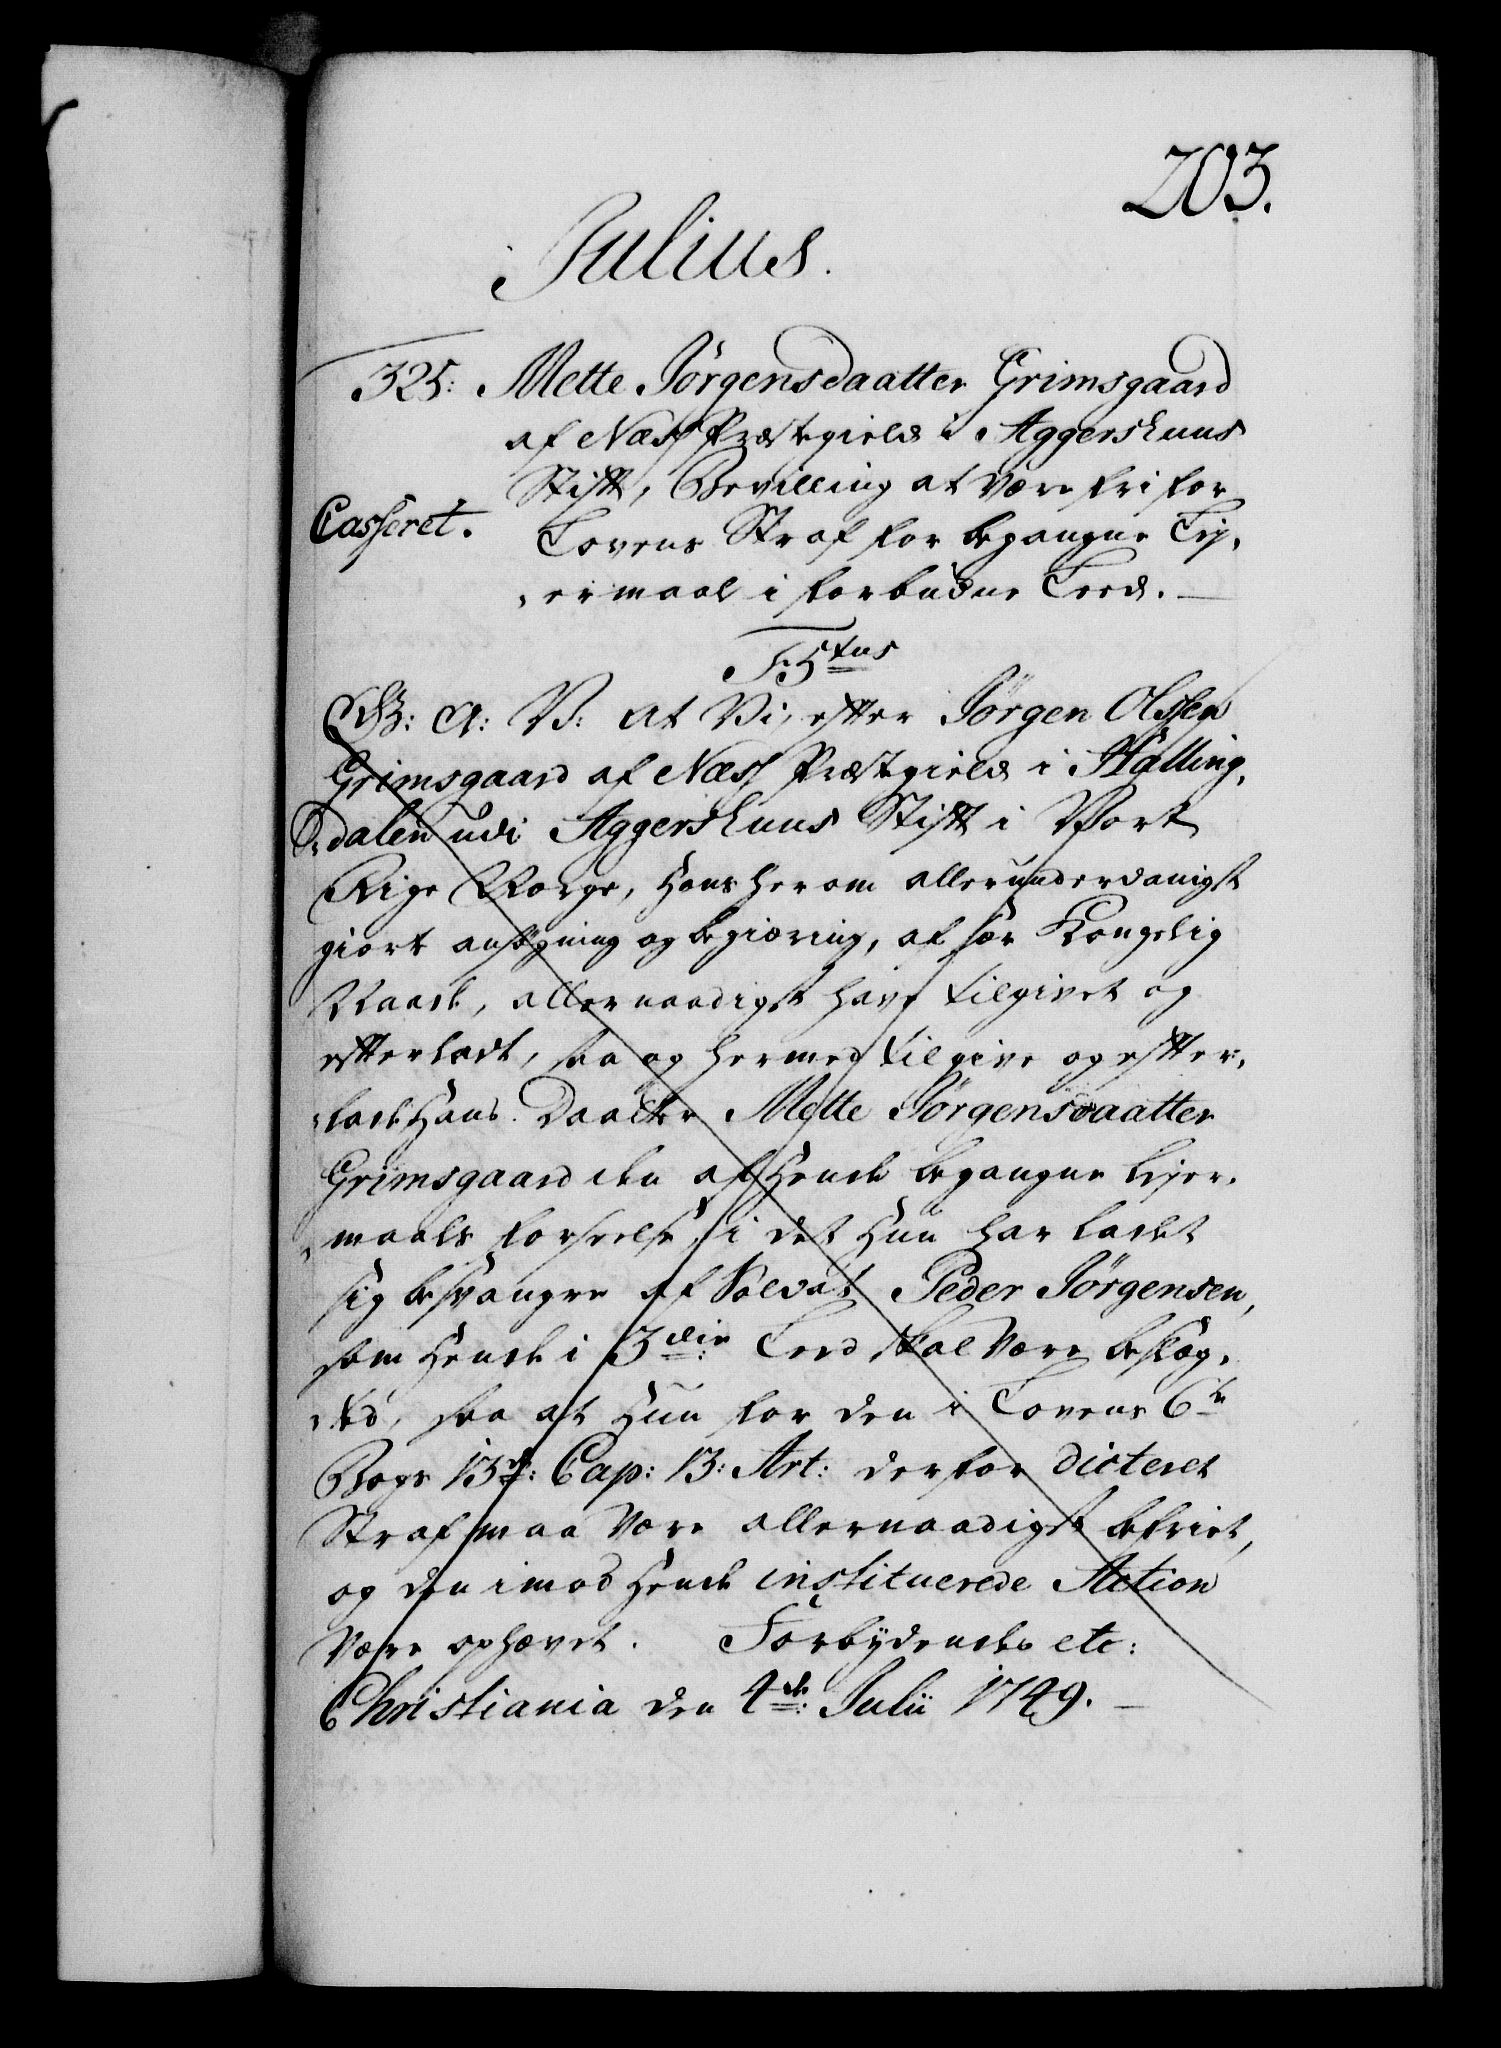 203.
Julius.
325: Mette Jörgensdaatter Grimsgaard
af Næss Præstegield i Aggershuus
Stift, Bevilling at være fri for
Casseret.
Lovens Straf for begangne Lej-
ermaal i forbudne Leed.
F: 5tus
G: A: V: at Vi, efter Jörgen Olssen
Grimsgaard af Næss Præstegield i Halling-
dalen udi Aggershuus Stift i Vort
Rige Norge, hans herom allerunderdanigst
giorte ansögning og begiæring, af sær Kongelig
Naade, allernaadigst have tilgivet og
efterladt, saa og hermed tilgive og efter-
lade Hans Daatter Mette Jörgensdaatter
Grimsgaard den af Hende begangne Lejer-
maals forseelse, i det Hun har ladet
sig besvangre af Soldat Peder Jörgensen,
som Hende i 3die Leed skal være beslæg-
tet, saa at Hun for den i Lovens 6te
Bogs 13de: Cap: 13: Art: derfor dicteret
Straf maa være allernaadigst befriet,
og den imod Hende instituerede Action
være ophævet. Forbydendes etc:
Christiania den 4de: Julii 1749.